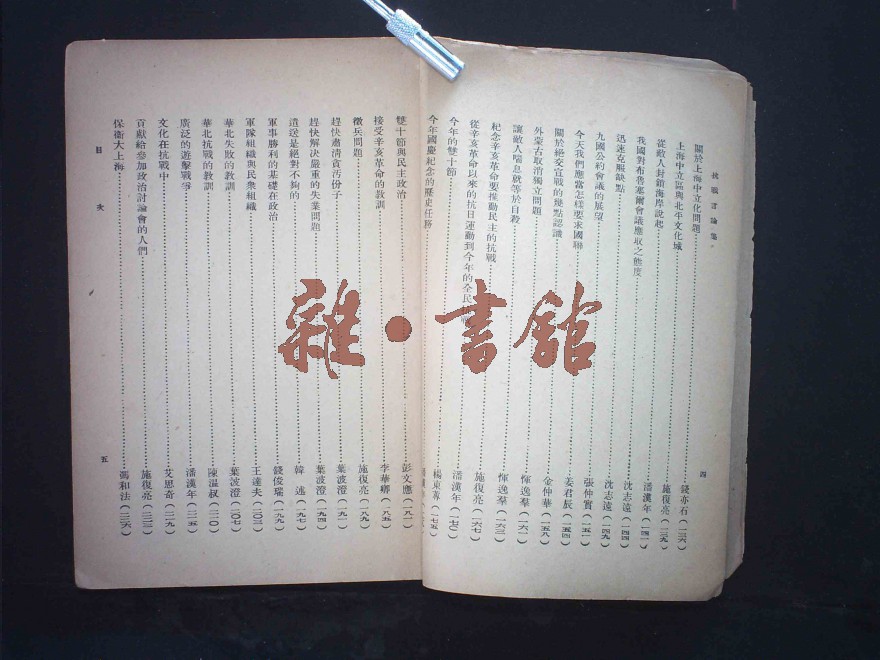 抗戰言論集
四
關於上海中立化問題……錢亦石(一三六)
上海中立區與北平文化城……施復亮(一三九)
從敵人封鎖海岸說起……潘漢年(一四一)
我國對布魯塞爾會議應取之態度……沈志遠(一四四)
迅速克服缺點……沈志遠(一四九)
九國公約會議的展望……張仲實(一五一)
今天我們應當怎樣要求國聯……姜君辰(一五四)
關於絕交宣戰的幾點認識……金仲華(一五八)
外蒙古取消獨立問題……惲逸羣(一六一)
讓敵人喘息就等於自殺……惲逸羣(一六三)
紀念辛亥革命要推動民主的抗戰……施復亮(一六七)
從辛亥革命以來的抗日運動到今年的全民……潘漢年(一七〇)
今年的雙十節……楊東蓴(一七五)
今年國慶紀念的歷史任務
雙十節與民主政治……彭文應(一八一)
接受辛亥革命的教訓……李華卿(一八五)
徵兵問題……施復亮(一八九)
趕快肅清貪汚份子……葉波澄(一九一)
趕快解決嚴重的失業問題……葉波澄(一九四)
這送是絕對不夠的……韓述(一九七)
軍事勝利的基礎在政治……錢俊瑞(一九九)
軍隊組織與民衆組織……王達夫(二〇三)
華北失敗的教訓……葉波澄(二〇七)
華北抗戰的教訓……陳溫叔(二一〇)
廣泛的遊擊戰爭……潘漢年(二一五)
文化在抗戰中……艾思奇(二一九)
貢獻給參加政治討論會的人們……施復亮(二二三)
保衞大上海……馮和法(二二六)
目次
五
雜·書館